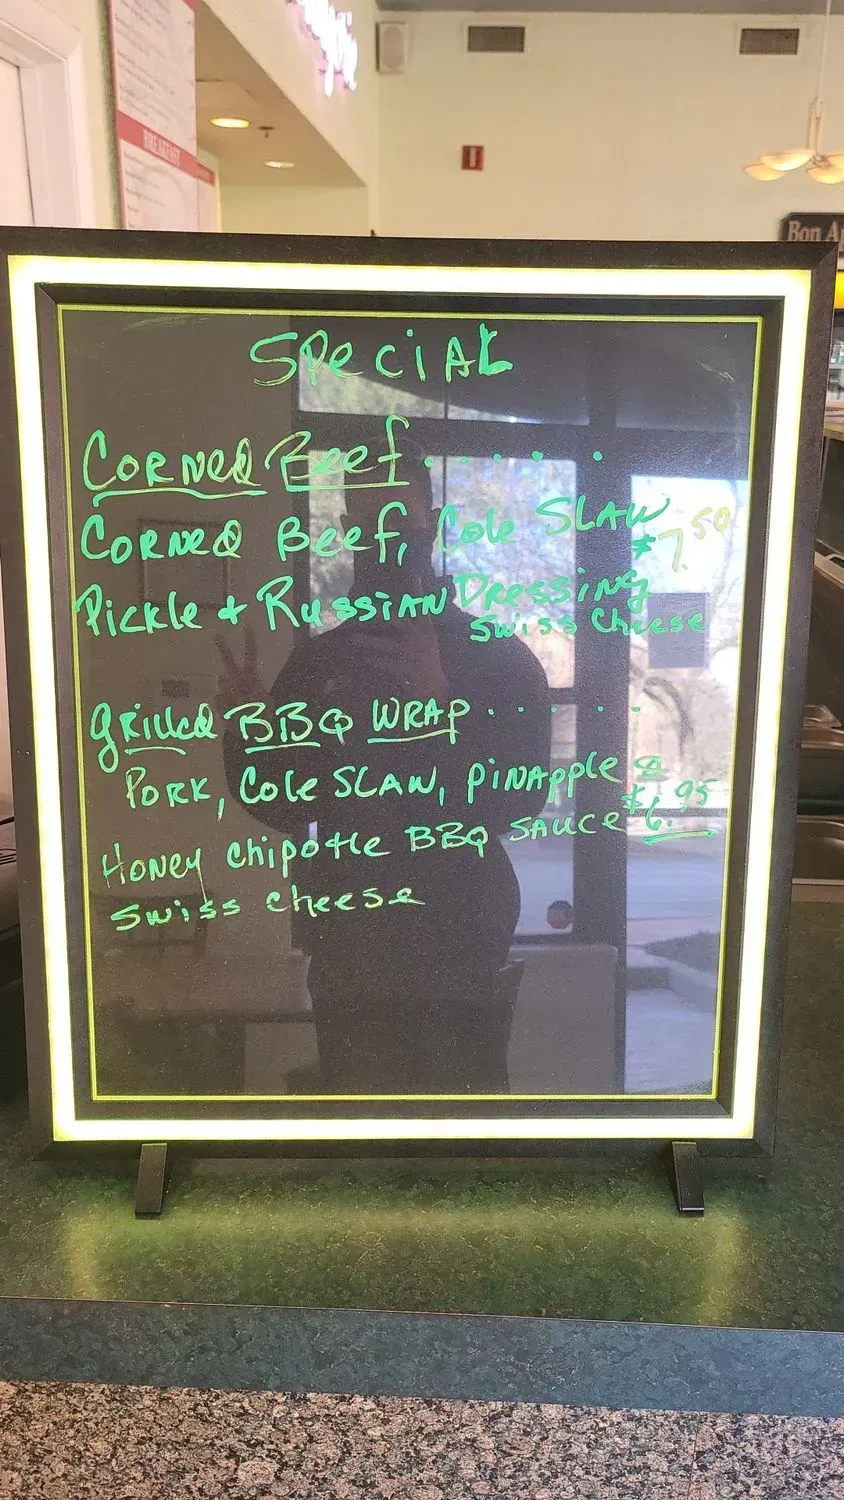 BREAKFAST
Bon A
Special
Corned Beef . . . . . .
Corned Beef, Cole Slaw
$7.50
Pickle & Russian Dressing
Swiss Cheese
Grilled BBQ Wrap . . . . . .
Pork, Cole Slaw, Pinapple &
$6.95
Honey Chipotle BBQ Sauce
Swiss Cheese